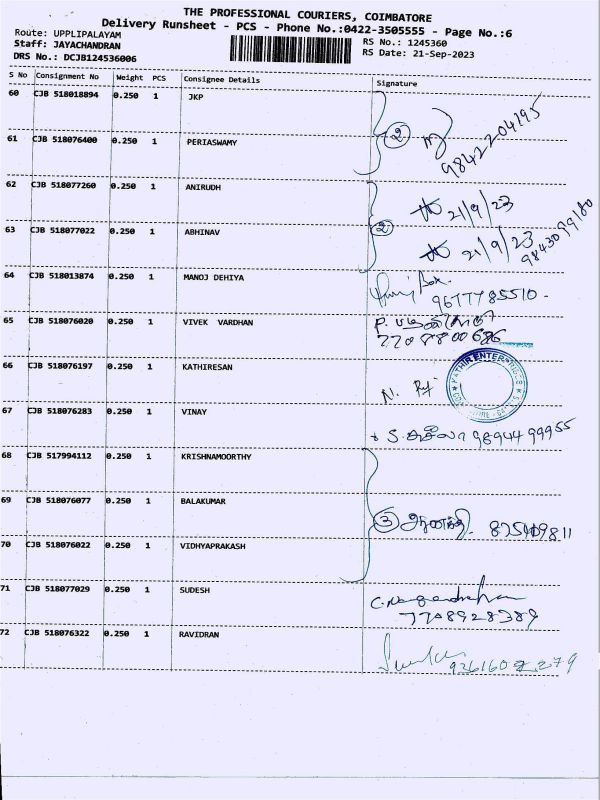 THE PROFESSIONAL COURIERS, COIMBATORE
Delivery Runsheet - PCS - Phone No.:0422-3505555 - Page No.:6
Route: UPPLIPALAYAM
Staff: JAYACHANDRAN
DRS No.: DCJB124536006
RS No.: 1245360
RS Date: 21-Sep-2023
S No Consignment No Weight PCS Consignee Details Signature
60 CJB 518018894 0.250 1 JKP
② 9842204195
61 CJB 518076400 0.250 1 PERIASWAMY
62 CJB 518077260 0.250 1 ANIRUDH 21/9/23
②
63 CJB 518077022 0.250 1 ABHINAV 21/9/23
9843099180
64 CJB 518013874 0.250 1 MANOJ DEHIYA
9677785510
65 CJB 518076020 0.250 1 VIVEK VARDHAN
66 CJB 518076197 0.250 1 KATHIRESAN N.
KATHIR ENTERPRISES
67 CJB 518076283 0.250 1 VINAY S. சுசீலா 9894499955
68 CJB 517994112 0.250 1 KRISHNAMOORTHY
69 CJB 518076077 0.250 1 BALAKUMAR
③ ஆனந்தி
70 CJB 518076022 0.250 1 VIDHYAPRAKASH
71 CJB 518077029 0.250 1 SUDESH
7708928389
72 CJB 518076322 0.250 1 RAVIDRAN